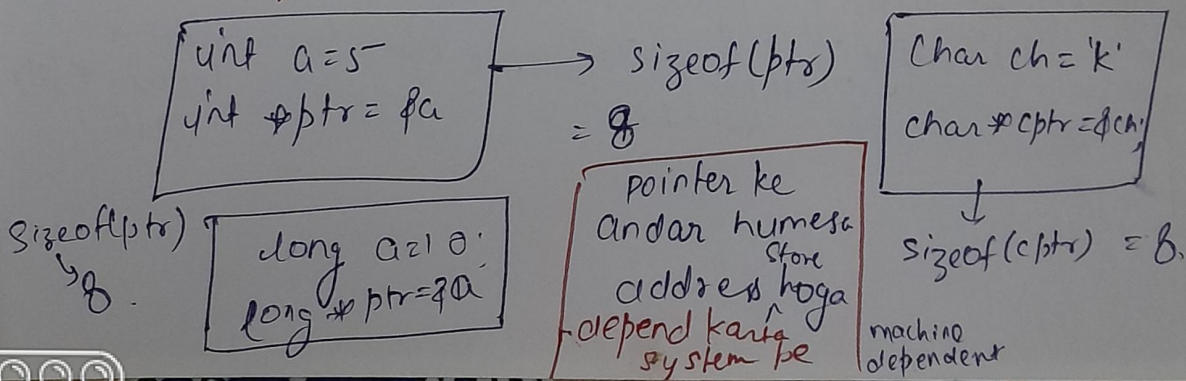 int a=5
int *ptr = &a
sizeof(ptr)
= 8
Char ch = 'k'
char *cptr = &ch;
sizeof(cptr) = 8.
sizeof(ptr)
8.
long a=10;
long * ptr=&a
pointer ke
andar humesa
store
address hoga
depend karta
system pe
machine
dependent